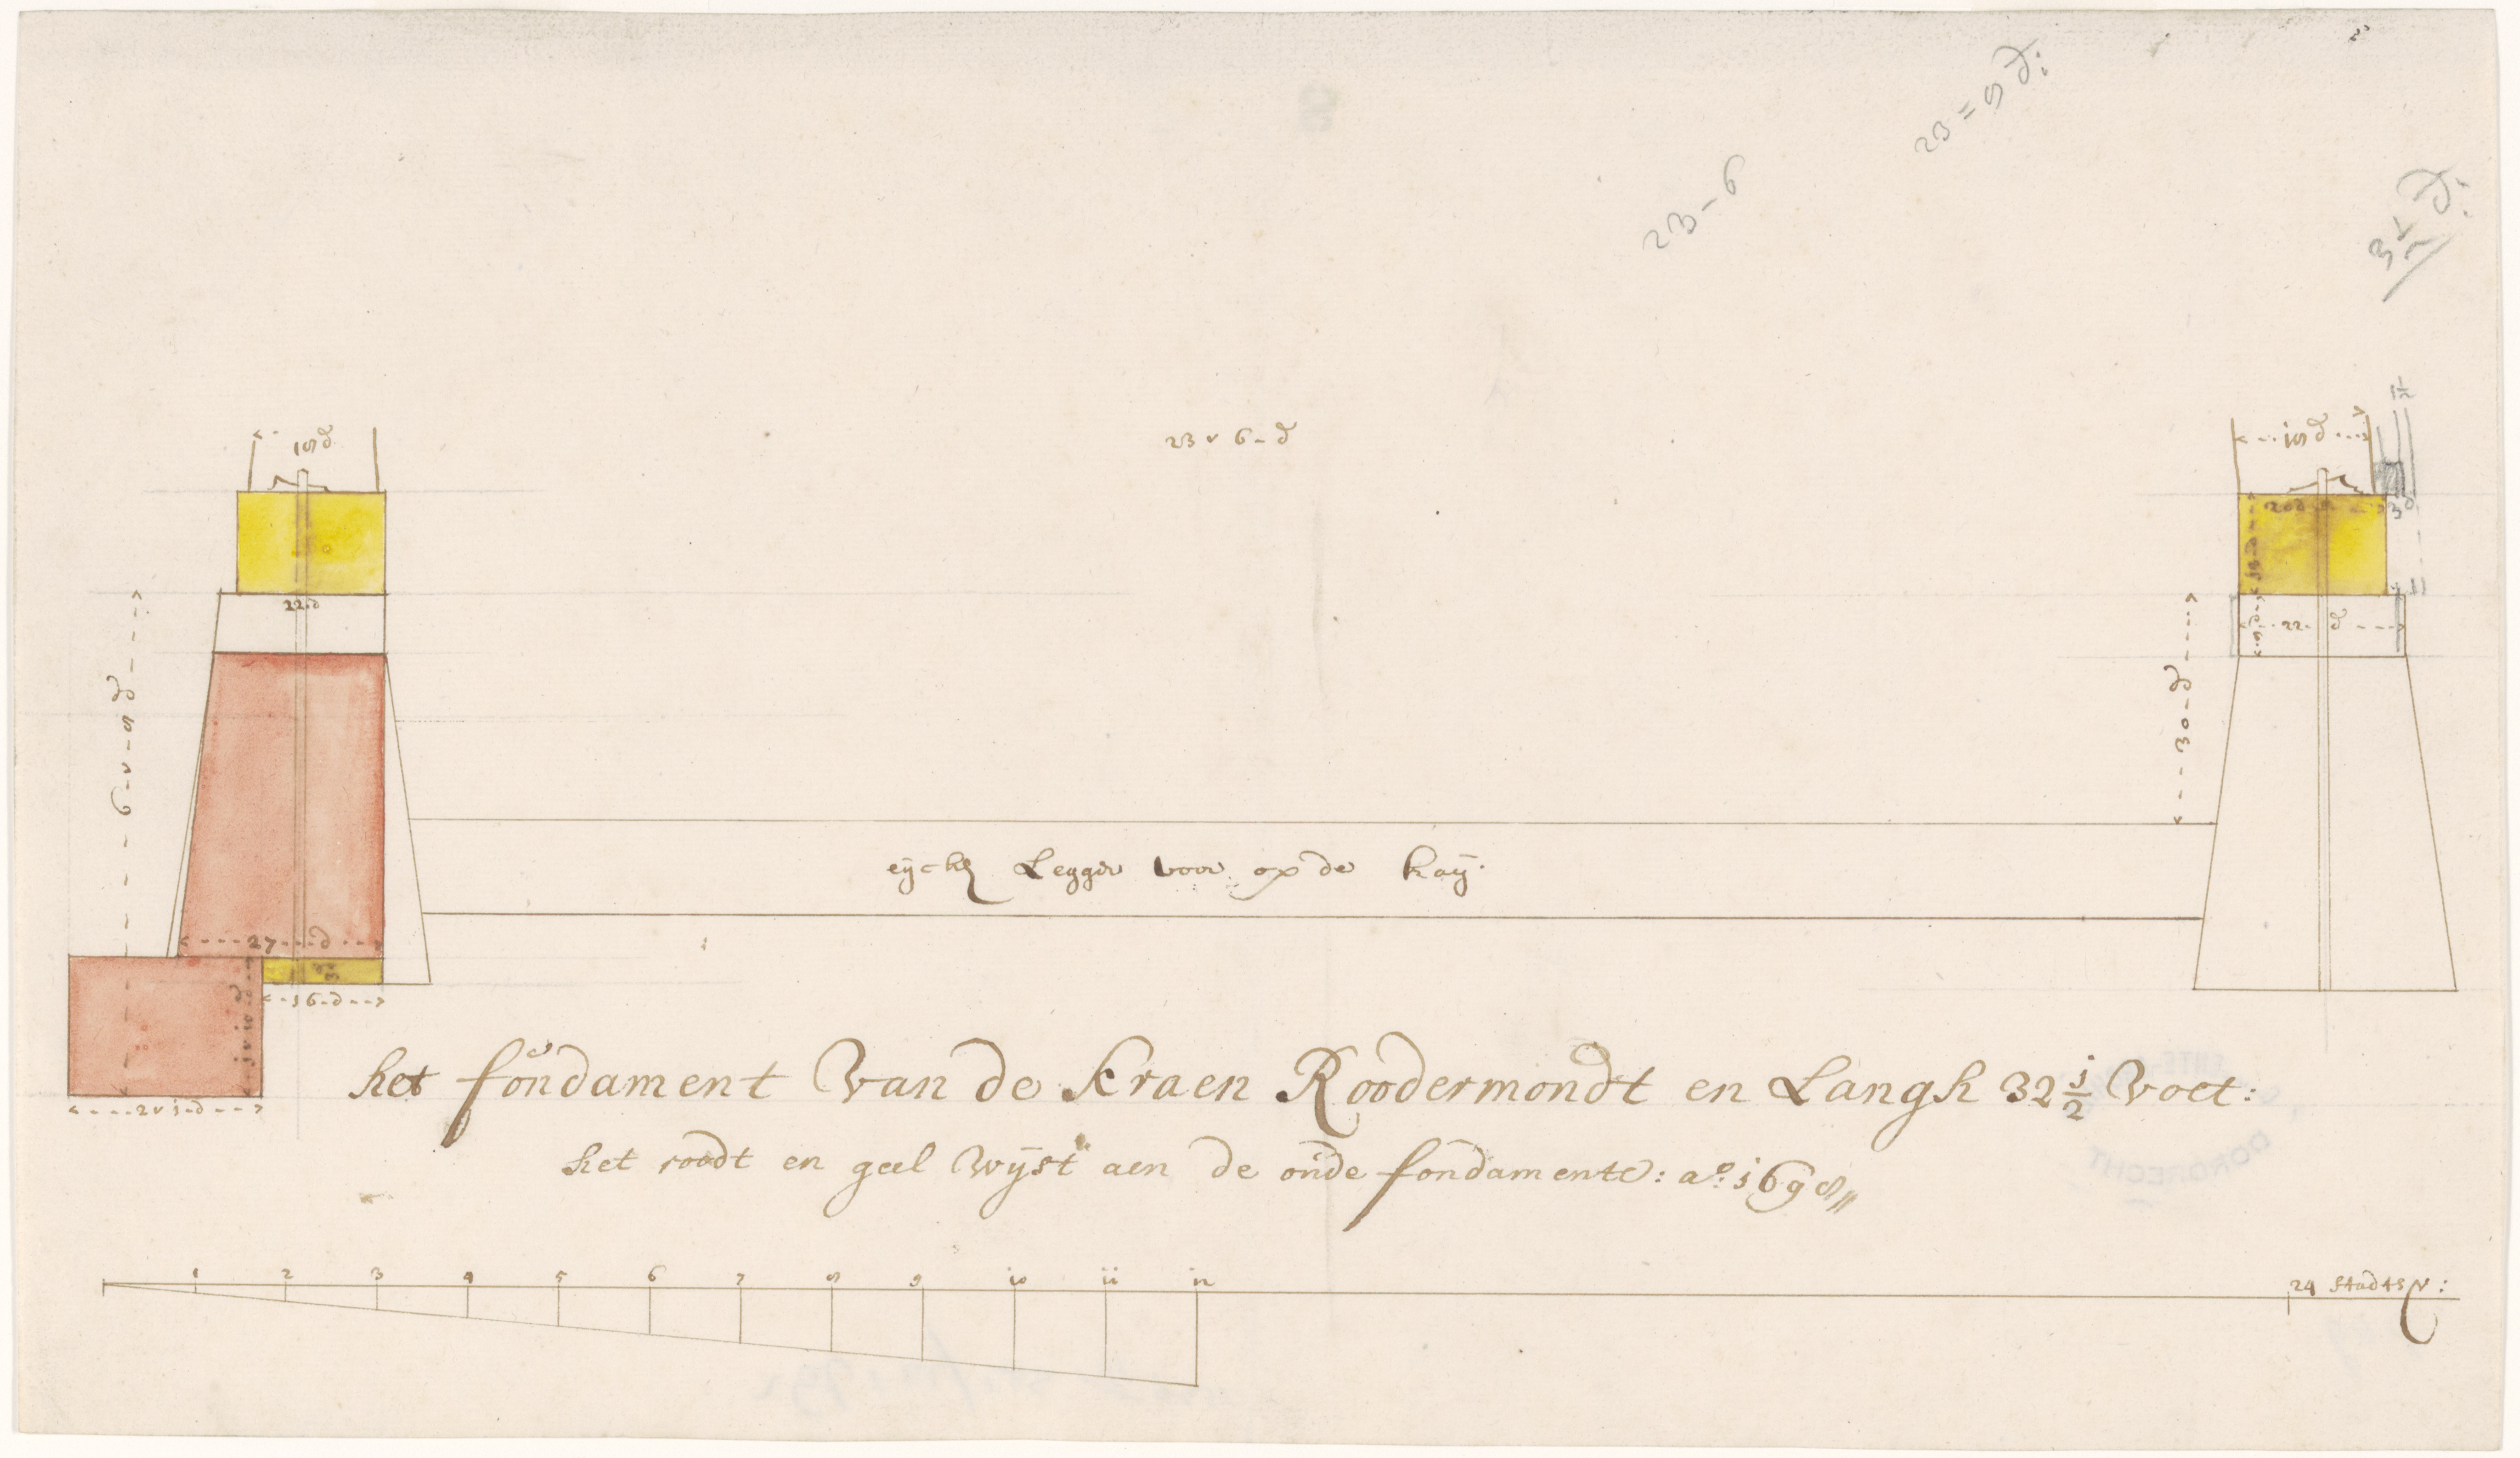 23-6
18 d
23 v 6-d
18 d
22 d
22 d
6-v-8-d
30-d
eycke Legger voor op de kaÿ.
27 d
16-d
2 v 1-d
het fŏndament Van de Kraen Roodermondt en Langh 32 1/2 Voet:
het roodt en geel Wÿst aen de oŭde fondamente: a.o 1698
1 2 3 4 5 6 7 8 9 10 11 12
24 stadts V: